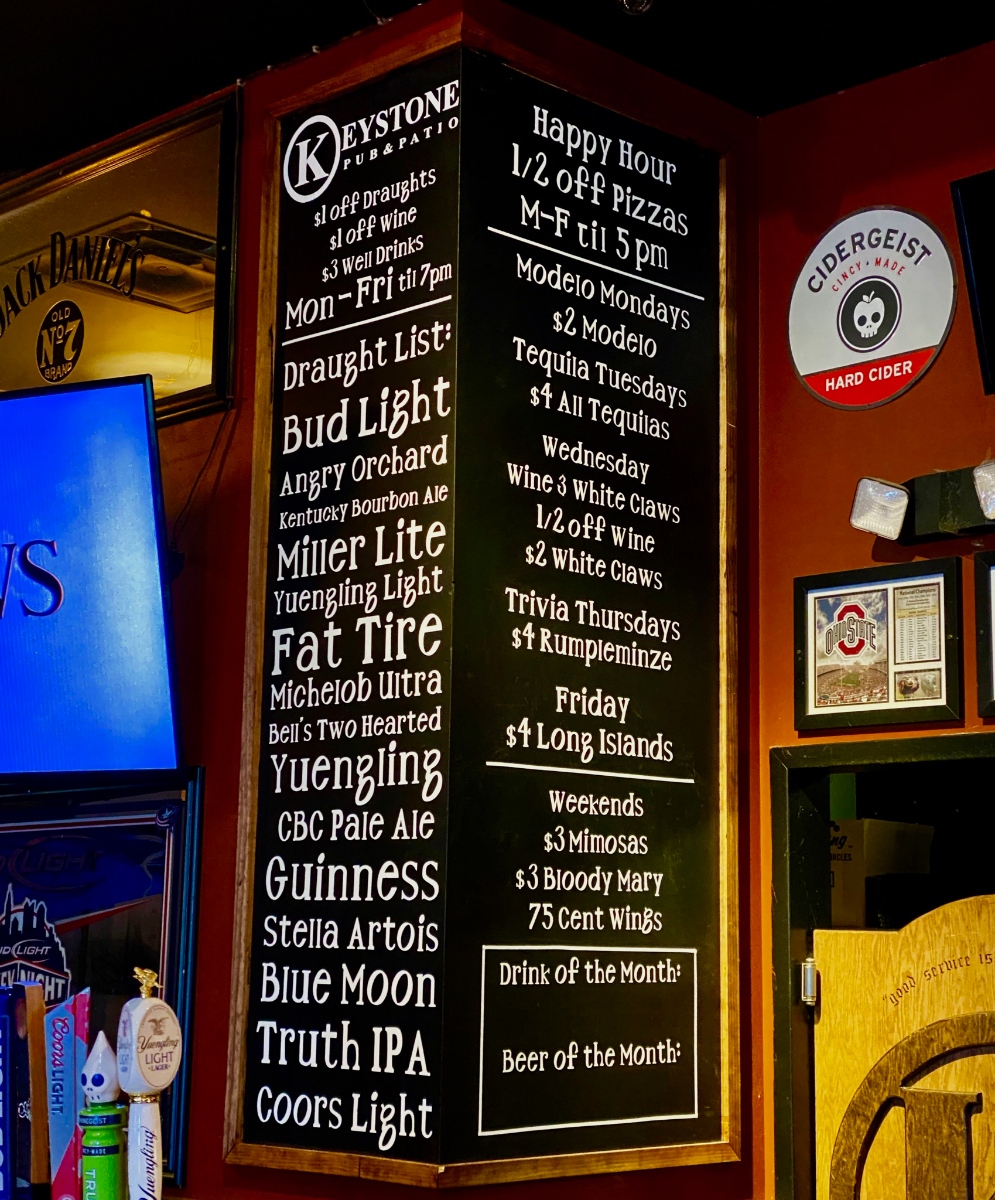 KEYSTONE
PUB & PATIO
$1 off Draughts
$1 off Wine
$3 Well Drinks
Mon-Fri til 7pm
Draught List:
Bud Light
Angry Orchard
Kentucky Bourbon Ale
Miller Lite
Yuengling Light
Fat Tire
Michelob Ultra
Bell's Two Hearted
Yuengling
CBC Pale Ale
Guinness
Stella Artois
Blue Moon
Truth IPA
Coors Light
Happy Hour
1/2 off Pizzas
M-F til 5pm
Modelo Mondays
$2 Modelo
Tequila Tuesdays
$4 All Tequilas
Wednesday
Wine 3 White Claws
1/2 off wine
$2 White Claws
Trivia Thursdays
$4 Rumpleminze
Friday
$4 Long Islands
Weekends
$3 Mimosas
$3 Bloody Mary
75 Cent Wings
Drink of the Month:
Beer of the Month:
JACK DANIEL'S
OLD
No 7
BRAND
LIGHT
LIGHT
NIGHT
Coors LIGHT
Yuengling
LIGHT
LAGER
Yuengling
TRU
CIDERGEIST
CINCY • MADE
HARD CIDER
OHIO STATE
National Champions
"good service is